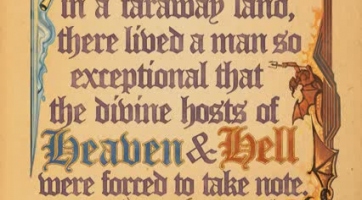 in a faraway land,
there lived a man so
exceptional that
the divine hosts of
Heaven & Hell
were forced to take note.